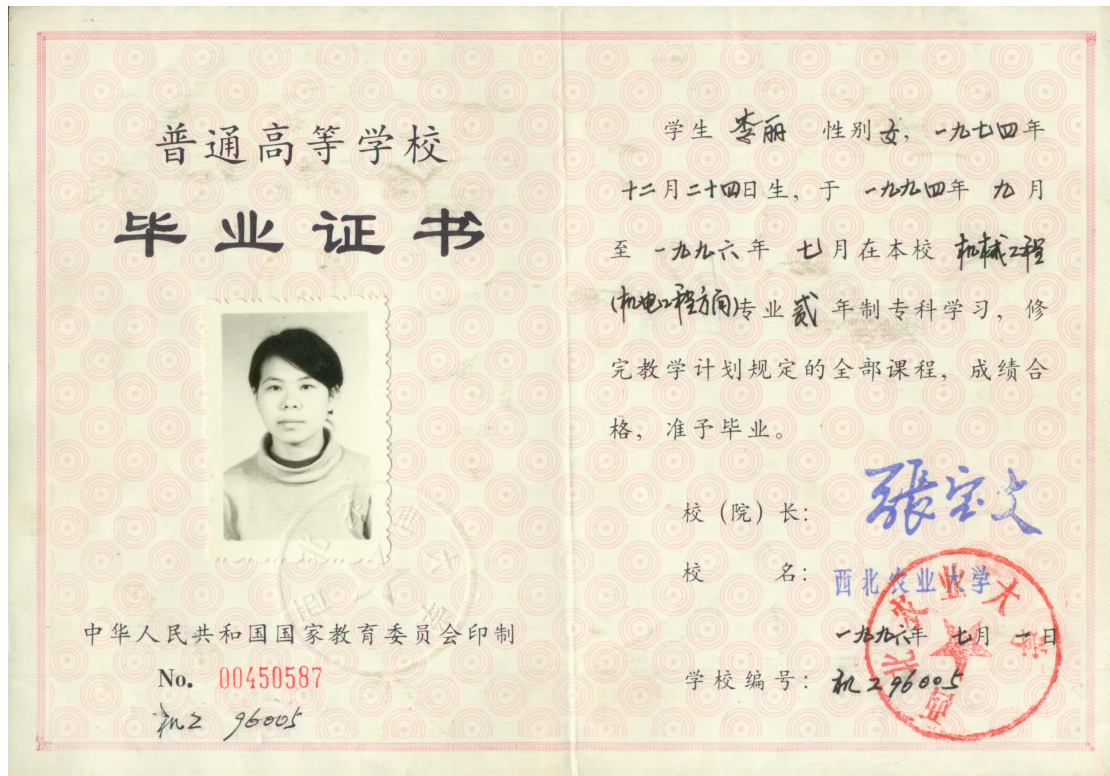 普通高等学校
毕业证书
中华人民共和国国家教育委员会印制
No. 00450587
机工 96005
学生 李丽 性别女，一九七四年
十二月二十四日生，于 一九九四年 九月
至 一九九六年 七月在本校 机械工程
(机电工程方向)专业贰年制专科学习，修
完教学计划规定的全部课程，成绩合
格，准予毕业。
校（院）长： 張宝文
校 名： 西北农业大学
一九九六年 七月 一日
学校编号： 机工96005
西北农业大学